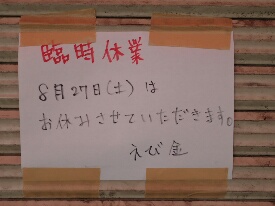 臨時休業
8月27日(土)は
お休みさせていただきます。
えび金